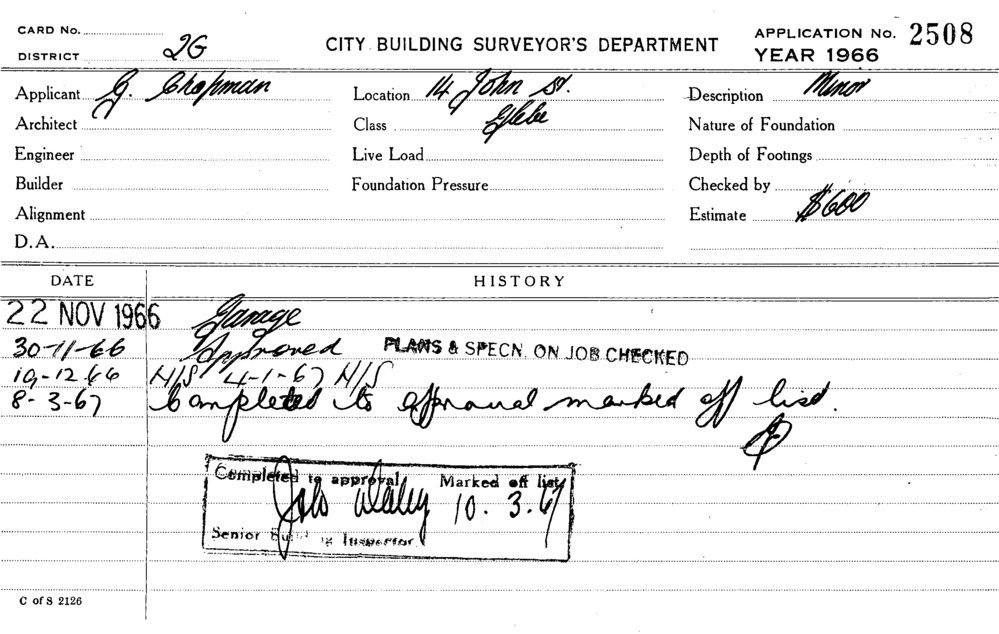 CARD No.
DISTRICT 2G
CITY BUILDING SURVEYOR'S DEPARTMENT
APPLICATION No. 2508
YEAR 1966
Applicant G. Chapman
Location 14 John St.
Description Minor
Architect
Class Glebe
Nature of Foundation
Engineer
Live Load
Depth of Footings
Builder
Foundation Pressure
Checked by
Alignment
Estimate $600
D.A.
DATE HISTORY
22 NOV 1966 Garage
30-11-66 Approved PLANS & SPECN. ON JOB CHECKED
19-12-66 N/S 4-1-67 N/S
8-3-67 Completed to approval marked off list.
Completed to approval Marked off list
10.3.67
Senior Building Inspector.
C of S 2126